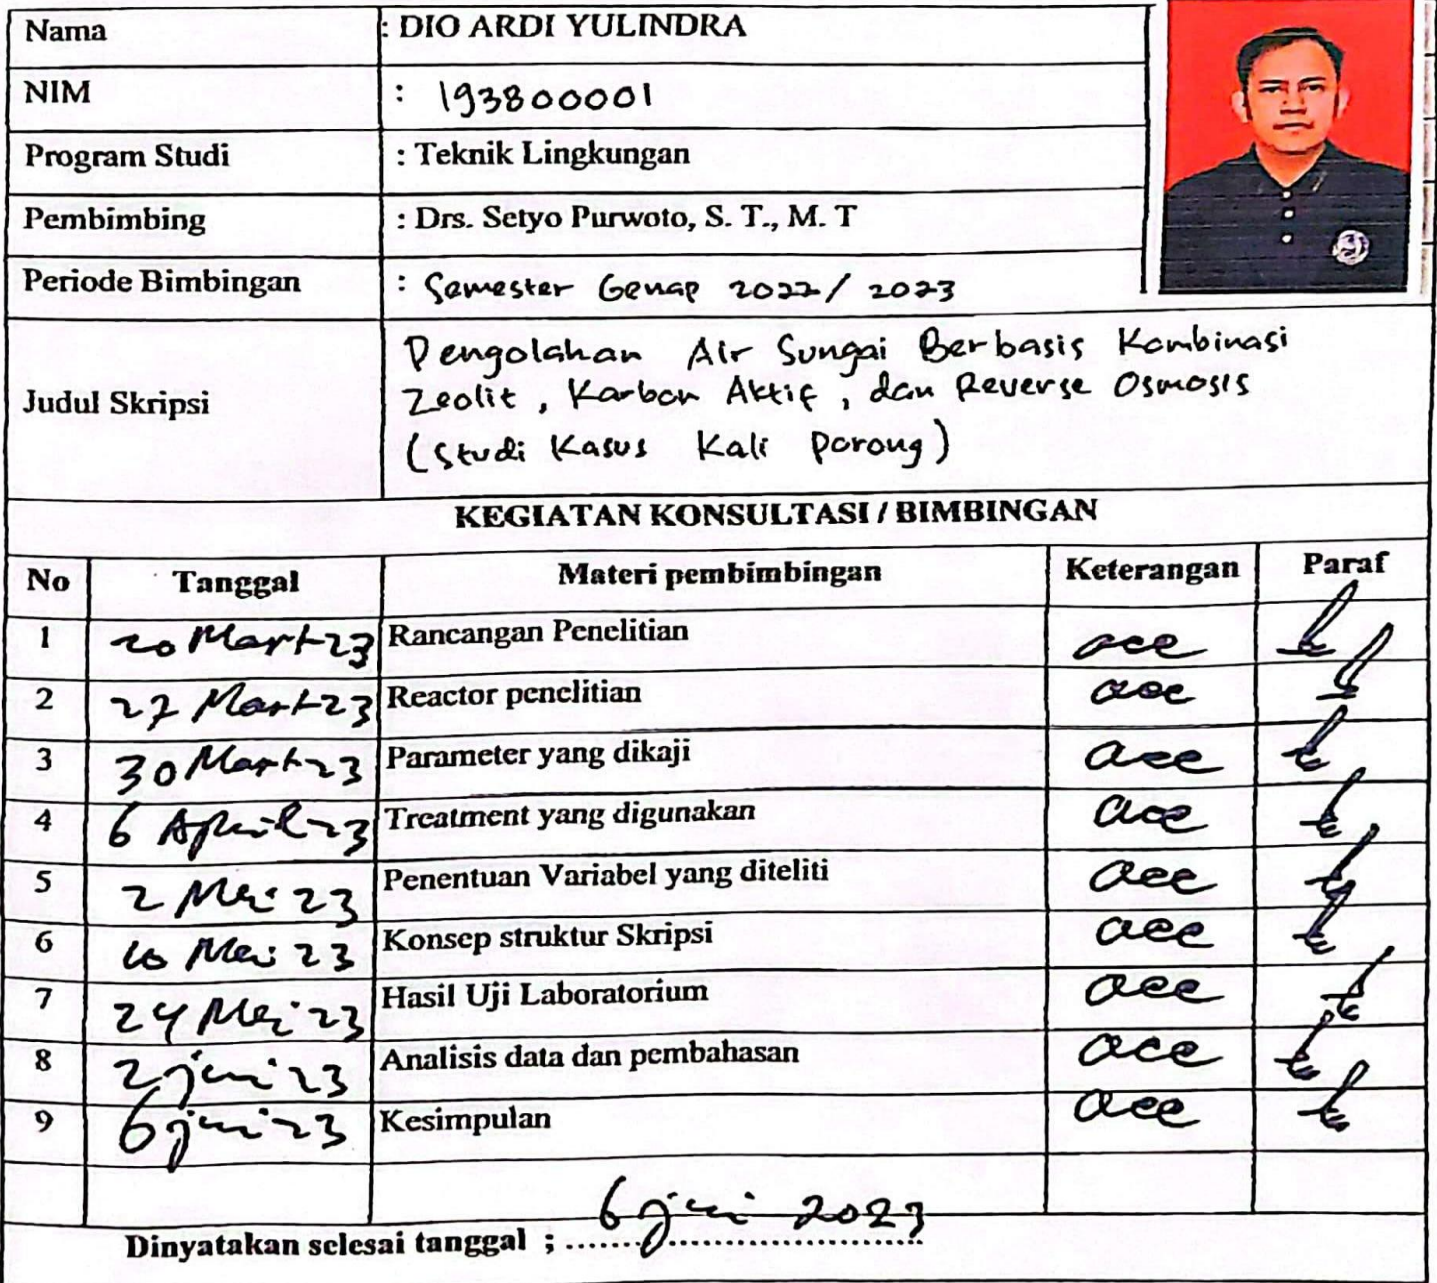 Nama : DIO ARDI YULINDRA
NIM : 193800001
Program Studi : Teknik Lingkungan
Pembimbing : Drs. Setyo Purwoto, S. T., M. T
Periode Bimbingan : Semester Genap 2022/2023
Judul Skripsi
Pengolahan Air Sungai Berbasis Kombinasi
Zeolit, Karbon Aktif, dan Reverse Osmosis
(Studi Kasus Kali Porong)
KEGIATAN KONSULTASI / BIMBINGAN
No Tanggal Materi pembimbingan Keterangan Paraf
1 20 Mart 23 Rancangan Penelitian acc
2 27 Mart 23 Reactor penelitian acc
3 30 Mart 23 Parameter yang dikaji acc
4 6 April 23 Treatment yang digunakan acc
5 2 Mei 23 Penentuan Variabel yang diteliti acc
6 Mei 23 Konsep struktur Skripsi acc
7 24 Mei 23 Hasil Uji Laboratorium acc
8 2 juni 23 Analisis data dan pembahasan acc
9 6 juni 23 Kesimpulan acc
Dinyatakan selesai tanggal ; 6 juni 2023